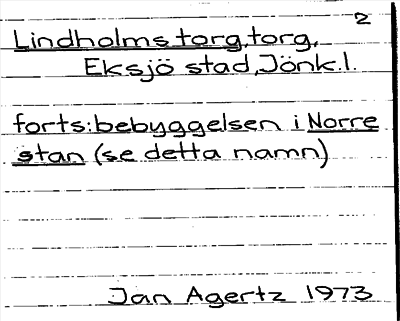 2
Lindholms torg, torg,
Eksjö stad, Jönk.l.
forts: bebyggelsen i Norre
stan (se detta namn)
Jan Agertz 1973